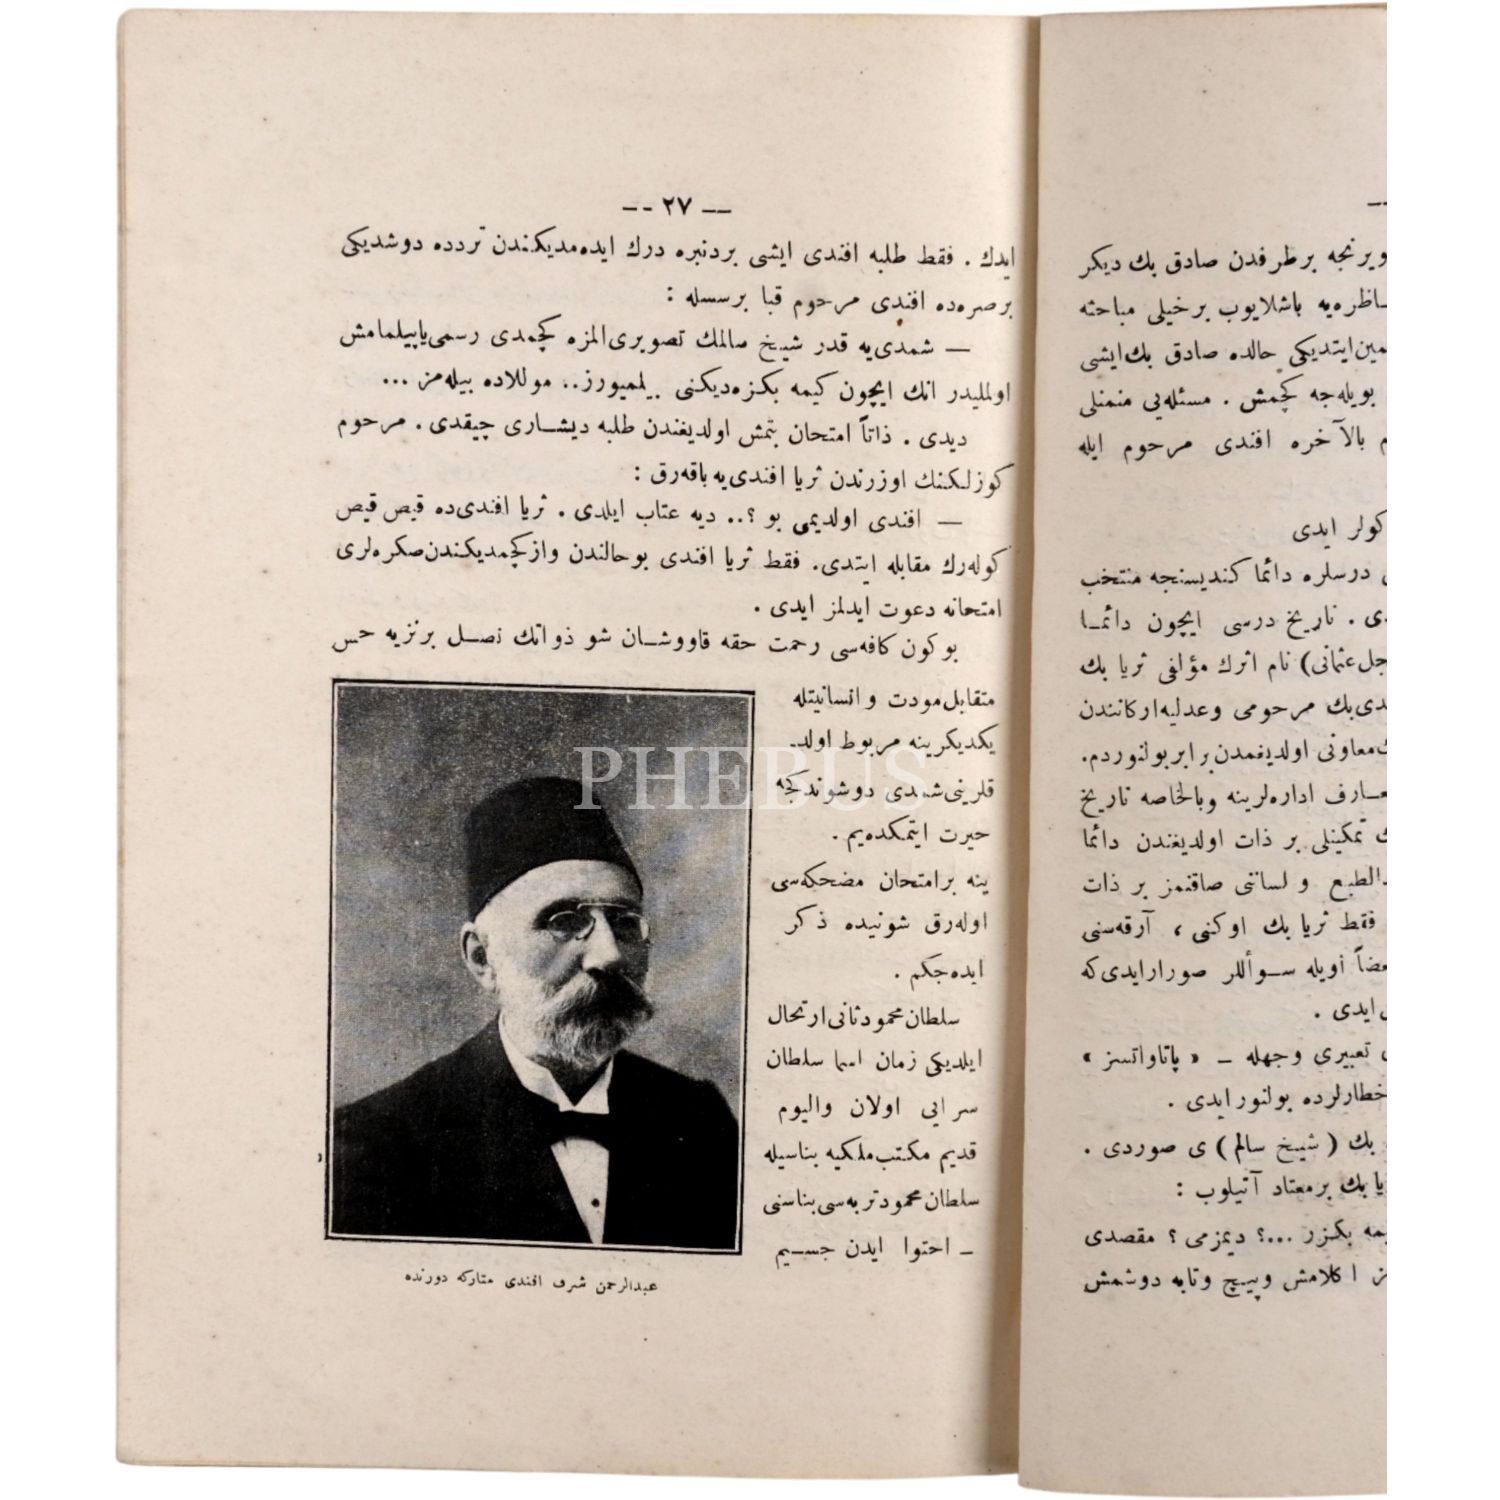 -- ٢٧ --
ايدك . فقط طلبه افندى ايشى بردنبره درك ايده‌مديكندن تردده دوشديكى
برصره‌ده افندى مرحوم قبا برسسله :
— شمدى‌يه قدر شيخ سالمك تصويرى‌المزه كچمدى رسمى‌ياپيلمامش
اولمليدر انك ايچون كيمه بكزه‌ديكنى بيلميورز.. موللاده بيله‌مز ...
ديدى . ذاتاً امتحان بتمش اولديغندن طلبه ديشارى چيقدى . مرحوم
كوزلكنك اوزرندن ثريا افندى‌يه باقه‌رق :
— افندى اولديمى بو ؟.. ديه عتاب ايلدى . ثريا افندى‌ده قيص قيص
كوله‌رك مقابله ايتدى. فقط ثريا افندى بوحالندن وازكچمديكندن‌صكره‌لرى
امتحانه دعوت ايدلمز ايدى .
بوكون كافه‌سى رحمت حقه قاووشان شو ذواتك نصل برنزيه حس
متقابل‌مودت وانسانيتله
يكديكرينه مربوط اولد-
قلرينى‌شمدى دوشوندكجه
حيرت ايتمكده‌يم .
ينه برامتحان مضحكه‌سى
اوله‌رق شونيده ذكر
ايده‌جكم .
سلطان‌محمودثانى‌ارتحال
ايلديكى زمان اسما سلطان
سرايى اولان واليوم
قديم مكتب‌ملكيه بناسيله
سلطان‌محمودتربه‌سى‌بناسنى
- احتوا ايدن جسيم
عبدالرحمن شرف افندى متاركه دورنده
PHEBUS
ويرنجه برطرفدن صادق بك ديكر
ـاظره‌يه باشلايوب برخيلى مباحثه
ـمين‌ايتديكى حالده صادق بك‌ايشى
بويله‌جه كچمش . مسئله‌يى منمنلى
م بالآخره افندى مرحوم ايله
كولر ايدى
درسلره دائما كنديسنجه منتخب
ـدى . تاريخ درسى ايچون دائمـا
ـجل‌عثمانى) نام اثرك مؤلفى ثريا بك
ـدى‌بك مرحومى وعدليه‌اركانندن
ك‌معاونى اولديغمدن برابربولنوردم.
ـعـارف اداره‌لرينه وبالخاصه تاريخ
ك تمكينلى بر ذات اولديغندن دائما
ـدالطبع و لسانتى صاقنمز بر ذات
فقط ثريا بك اوكنى ، آرقه‌سنى
ـعضاً اويله سـوأللر صورارايدى‌كه
ايدى .
تعبيرى وجهله – « پاتاواتسز »
ـخطارلرده بولنورايدى .
بك ( شيخ سالم ) ى صوردى .
ـيا بك برمعتاد آتيلوب :
ـيمه بكزر ...؟ ديمزمى ؟ مقصدى
ـز اكلامش وپيچ وتابه دوشمش